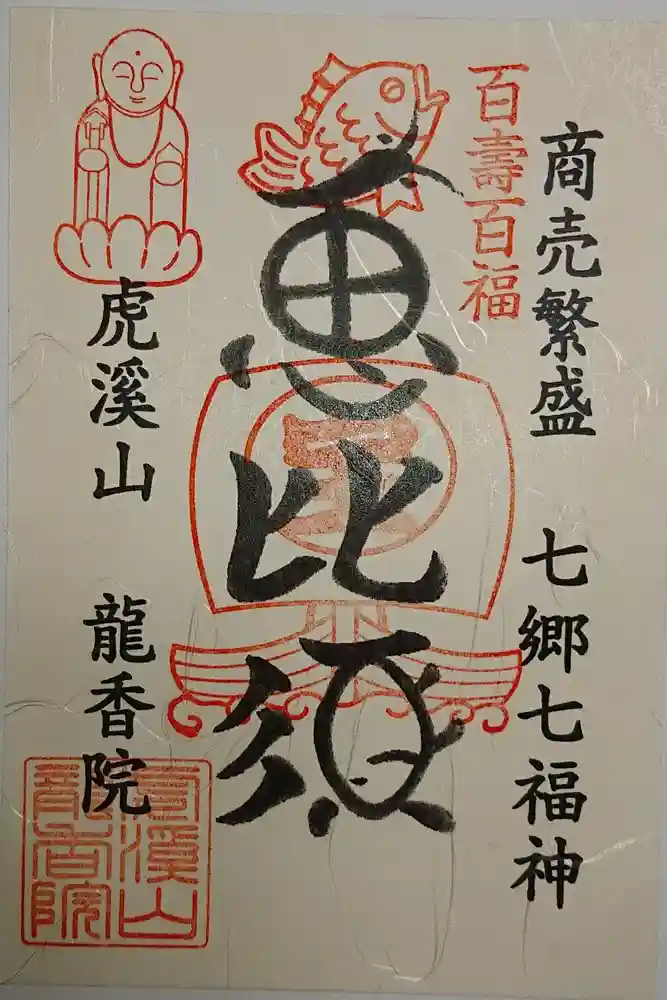 商売繁盛 七郷七福神
百壽百福
恵比須
宝
虎溪山 龍香院
虎溪山
龍香院